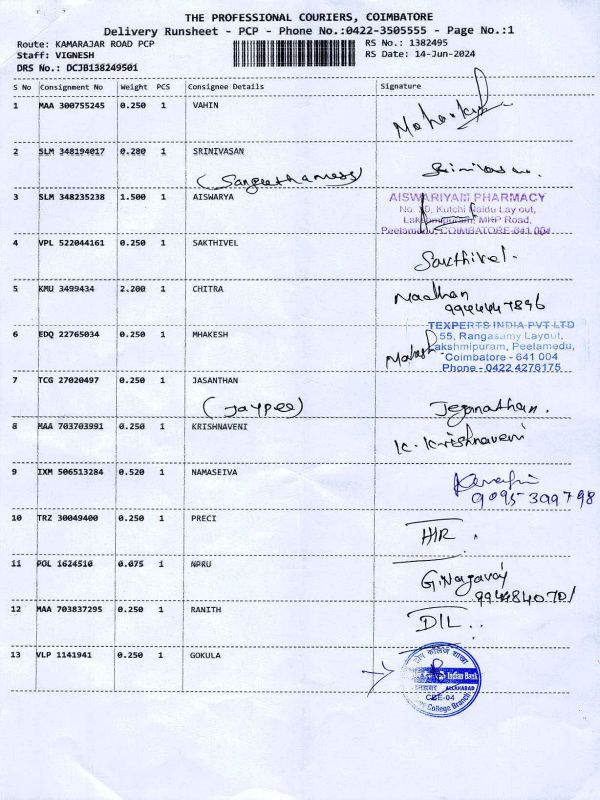 THE PROFESSIONAL COURIERS, COIMBATORE
Delivery Runsheet - PCP - Phone No.:0422-3505555 - Page No.:1
Route: KAMARAJAR ROAD PCP RS No.: 1382495
Staff: VIGNESH RS Date: 14-Jun-2024
DRS No.: DCJB138249501
S No Consignment No Weight PCS Consignee Details Signature
1 MAA 300755245 0.250 1 VAHIN
2 SLM 348194017 0.280 1 SRINIVASAN Srinivasan.
(Sangeethamess)
3 SLM 348235238 1.500 1 AISWARYA AISWARIYAM PHARMACY
No. 10, Kutchi Naidu Lay out,
Lakshmipuram, MKP Road,
Peelamedu, COIMBATORE-641 004
4 VPL 522044161 0.250 1 SAKTHIVEL
Sakthivel.
5 KMU 3499434 2.200 1 CHITRA Naathan
9944447896
6 EDQ 22765034 0.250 1 MHAKESH TEXPERTS INDIA PVT LTD
55, Rangasamy Layout,
Lakshmipuram, Peelamedu,
Coimbatore - 641 004
Phone - 0422 4276175
7 TCG 27020497 0.250 1 JASANTHAN
(Jaypee) Jeganathan.
8 MAA 703703991 0.250 1 KRISHNAVENI K. Krishnaveni
9 IXM 506513284 0.520 1 NAMASEIVA
9095399798
10 TRZ 30049400 0.250 1 PRECI
HR.
11 POL 1624510 0.075 1 NPRU
G.Nagaraj
9949840701
12 MAA 703837295 0.250 1 RANITH
DIL..
13 VLP 1141941 0.250 1 GOKULA
Indian Bank
ALLAHABAD
CBE-04
College Branch